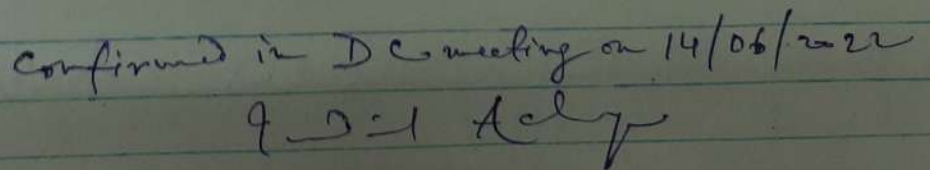 Confirmed in DC meeting on 14/06/2022